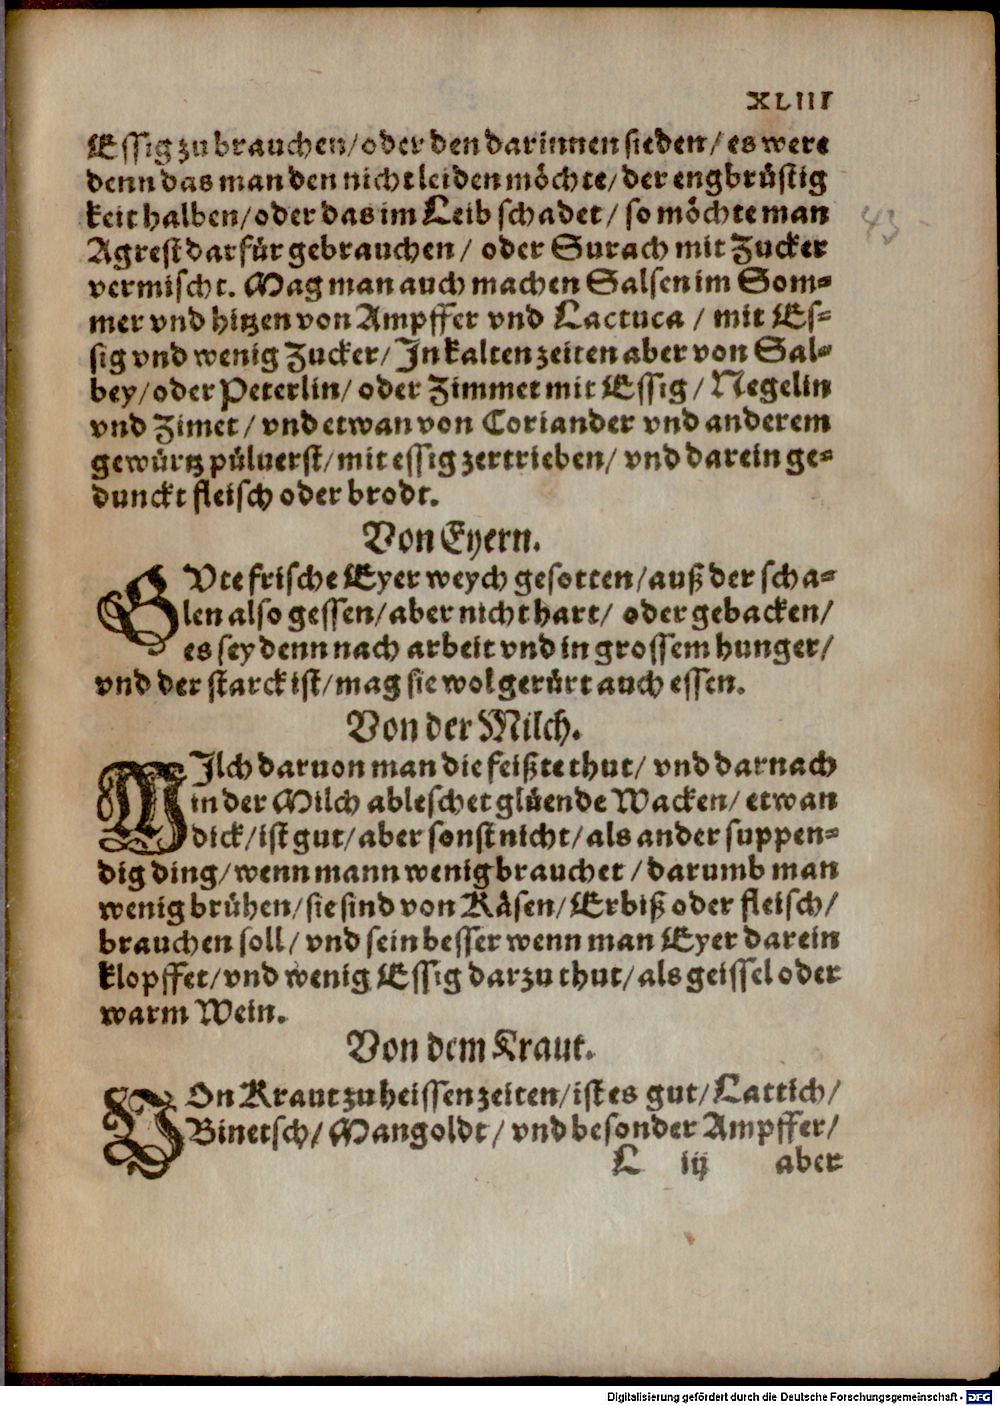 XLIII
Essig zu brauchen/oder den darinnen sieden/ es were
denn das man den nicht leiden möchte/ der engbrüstig
keit halben/oder das im Leib schadet/ so möchte man
Agrest darfür gebrauchen/ oder Surach mit Zucker
vermischt. Mag man auch machen Salsen im Som-
mer vnd hitzen von Ampffer vnd Lactuca / mit Es-
sig vnd wenig Zucker/ In kalten zeiten aber von Sal-
bey/oder Peterlin/ oder Zimmet mit Essig/ Negelin
vnd Zimet/ vnd etwan von Coriander vnd anderem
gewürtz püluerst/ mit essig zertrieben/ vnd darein ge-
dunckt fleisch oder brodt.
43
Von Eyern.
GVte frische Eyer weych gesotten/auß der scha-
len also gessen/aber nicht hart/ oder gebacken/
es sey denn nach arbeit vnd in grossem hunger/
vnd der starck ist/mag sie wol gerürt auch essen.
Von der Milch.
MIlch daruon man die feißte thut/ vnd darnach
in der Milch ableschet glüende Wacken/ etwan
dick/ist gut/aber sonst nicht/als ander suppen-
dig ding/wenn mann wenig brauchet /darumb man
wenig brühen/sie sind von Käsen/Erbiß oder fleisch/
brauchen soll/ vnd sein besser wenn man Eyer darein
klopffet/vnd wenig Essig darzu thut/als geissel oder
warm Wein.
Von dem Kraut.
VOn Kraut zu heissen zeiten/ist es gut/ Lattich/
Binetsch/ Mangoldt/ vnd besonder Ampffer/
L iij aber
Digitalisierung gefördert durch die Deutsche Forschungsgemeinschaft - DFG